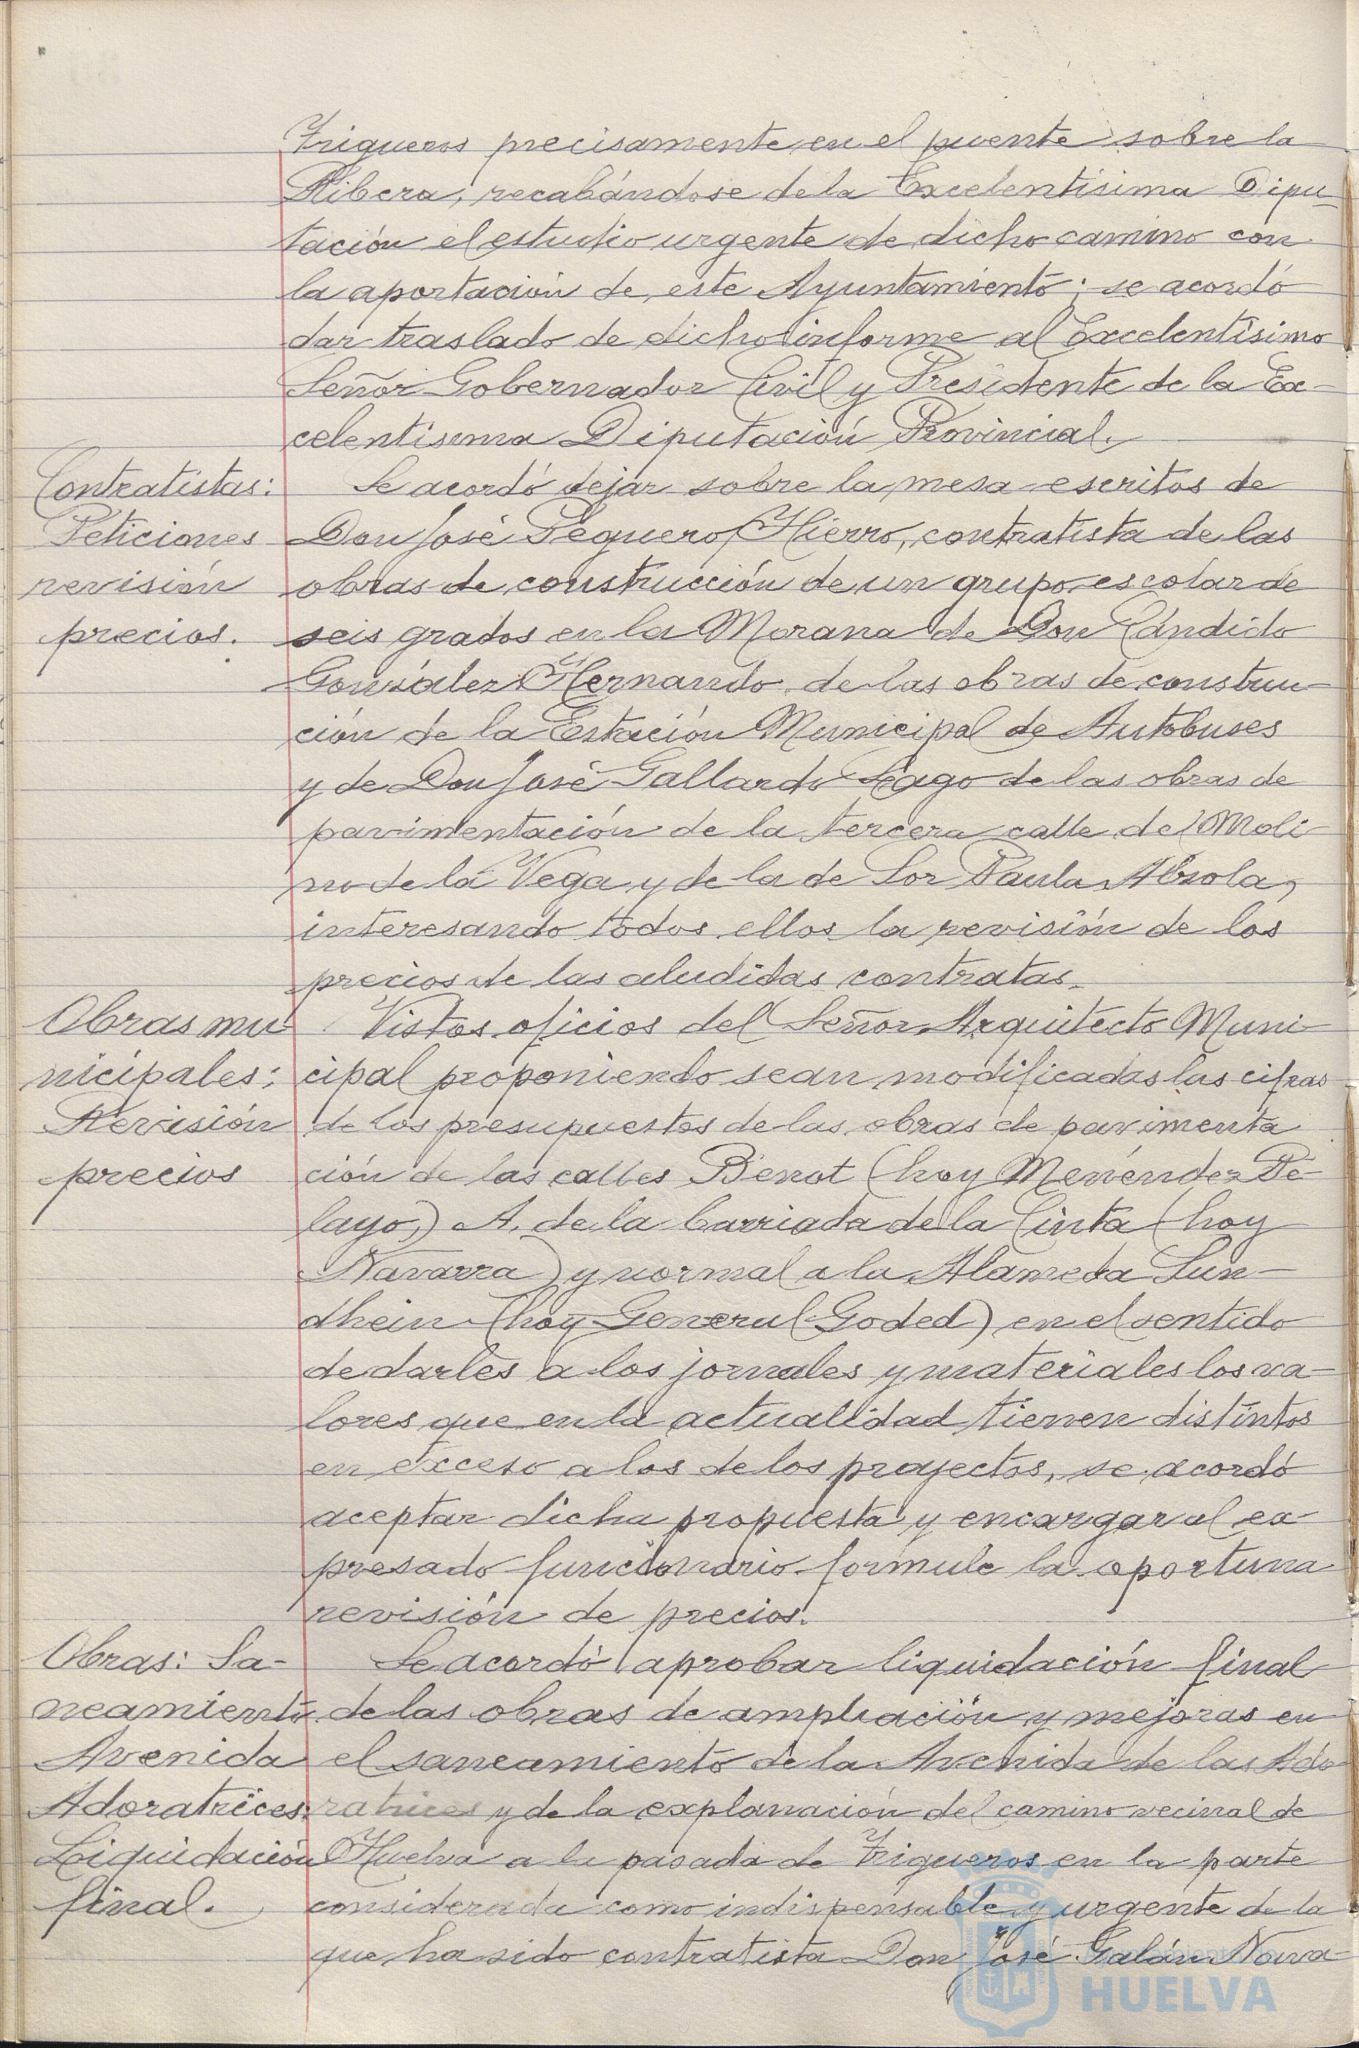 Trigueros precisamente en el puente sobre la
Ribera, recabándose de la Excelentísima Dipu-
tación el estudio urgente de dicho camino con
la aportación de este Ayuntamiento; se acordó
dar traslado de dicho informe al Excelentísimo
Señor Gobernador Civil y Presidente de la Ex-
celentisima Diputación Provincial.
Contratistas:
Peticiones
revisión
precios.
Se acordó dejar sobre la mesa escritos de
Don José Peguero Hierro, contratista de las
obras de construcción de un grupo escolar de
seis grados en la Morana de Don Cándido
González Hernando de las obras de construc-
ción de la Estación Municipal de Autobuses
y de Don José Gallardo Lago de las obras de
pavimentación de la tercera calle del Moli-
no de la Vega y de la de Sor Paula Alzola,
interesando todos ellos la revisión de los
precios de las aludidas contratas.
Obras mu-
nicipales:
Revisión
precios
Vistos oficios del Señor Arquitecto Muni-
cipal proponiendo sean modificadas las cifras
de los presupuestos de las obras de pavimenta
ción de las calles Benot (hoy Menéndez Pe-
layo,) A. de la barriada de la Cinta (hoy
Navarra) y normal a la Alameda Sun-
dhein (hoy General Goded) en el sentido
de darles a los jornales y materiales los va-
lores que en la actualidad tienen distintos
en exceso a los de los proyectos, se acordó
aceptar dicha propuesta y encargar al ex
presado funcionario formule la oportuna
revisión de precios.
Obras: Sa-
neamiento
Avenida
Adoratrices:
Liquidación
final.
Se acordó aprobar liquidación final
de las obras de ampliación y mejoras en
el saneamiento de la Avenida de las Ado
ratrices y de la explanación del camino vecinal de
Huelva a la pasada de Trigueros en la parte
considerada como indispensable y urgente de la
que ha sido contratista Don José Galán Nava-
HUELVA